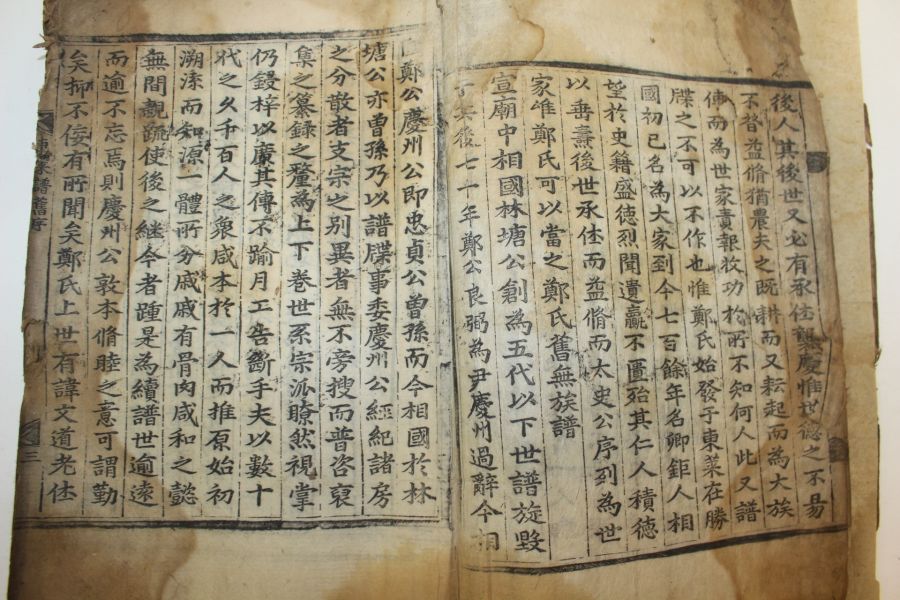 後人其後世又必有承仕襲慶惟世德之不易
不替益脩猶農夫之旣耕而又耘起而為大族
傳而為世家責報收功於所不知何人此又譜
牒之不可以不作也惟鄭氏始發于東萊在勝
國初已名為大家到今七百餘年名卿鉅人相
望於史籍盛德烈聞遺贏不匱殆其仁人積德
以垂燾後世承仕而益脩而太史公序列為世
家惟鄭氏可以當之鄭氏舊無族譜
宣廟中相國林塘公創為五代以下世譜旋毀
于兵後七十年鄭公良弼為尹慶州過辭今相
鄭公慶州公即忠貞公曾孫而今相國於林
塘公亦曾孫乃以譜牒事委慶州公經紀諸房
之分散者支宗之別異者無不旁搜而普咨裒
集之纂錄之釐為上下卷世系宗派瞭然視掌
仍鋟梓以廣其傳不踰月工告斷手夫以數十
代之久千百人之衆咸本於一人而推原始初
溯洓而知源一體所分戚戚有骨肉咸和之懿
無間親疏使後之繼今者踵是為續譜世逾遠
而逾不忘焉則慶州公敦本脩睦之意可謂勤
矣抑不佞有所聞矣鄭氏上世有諱文道老仕
譜舊序
三